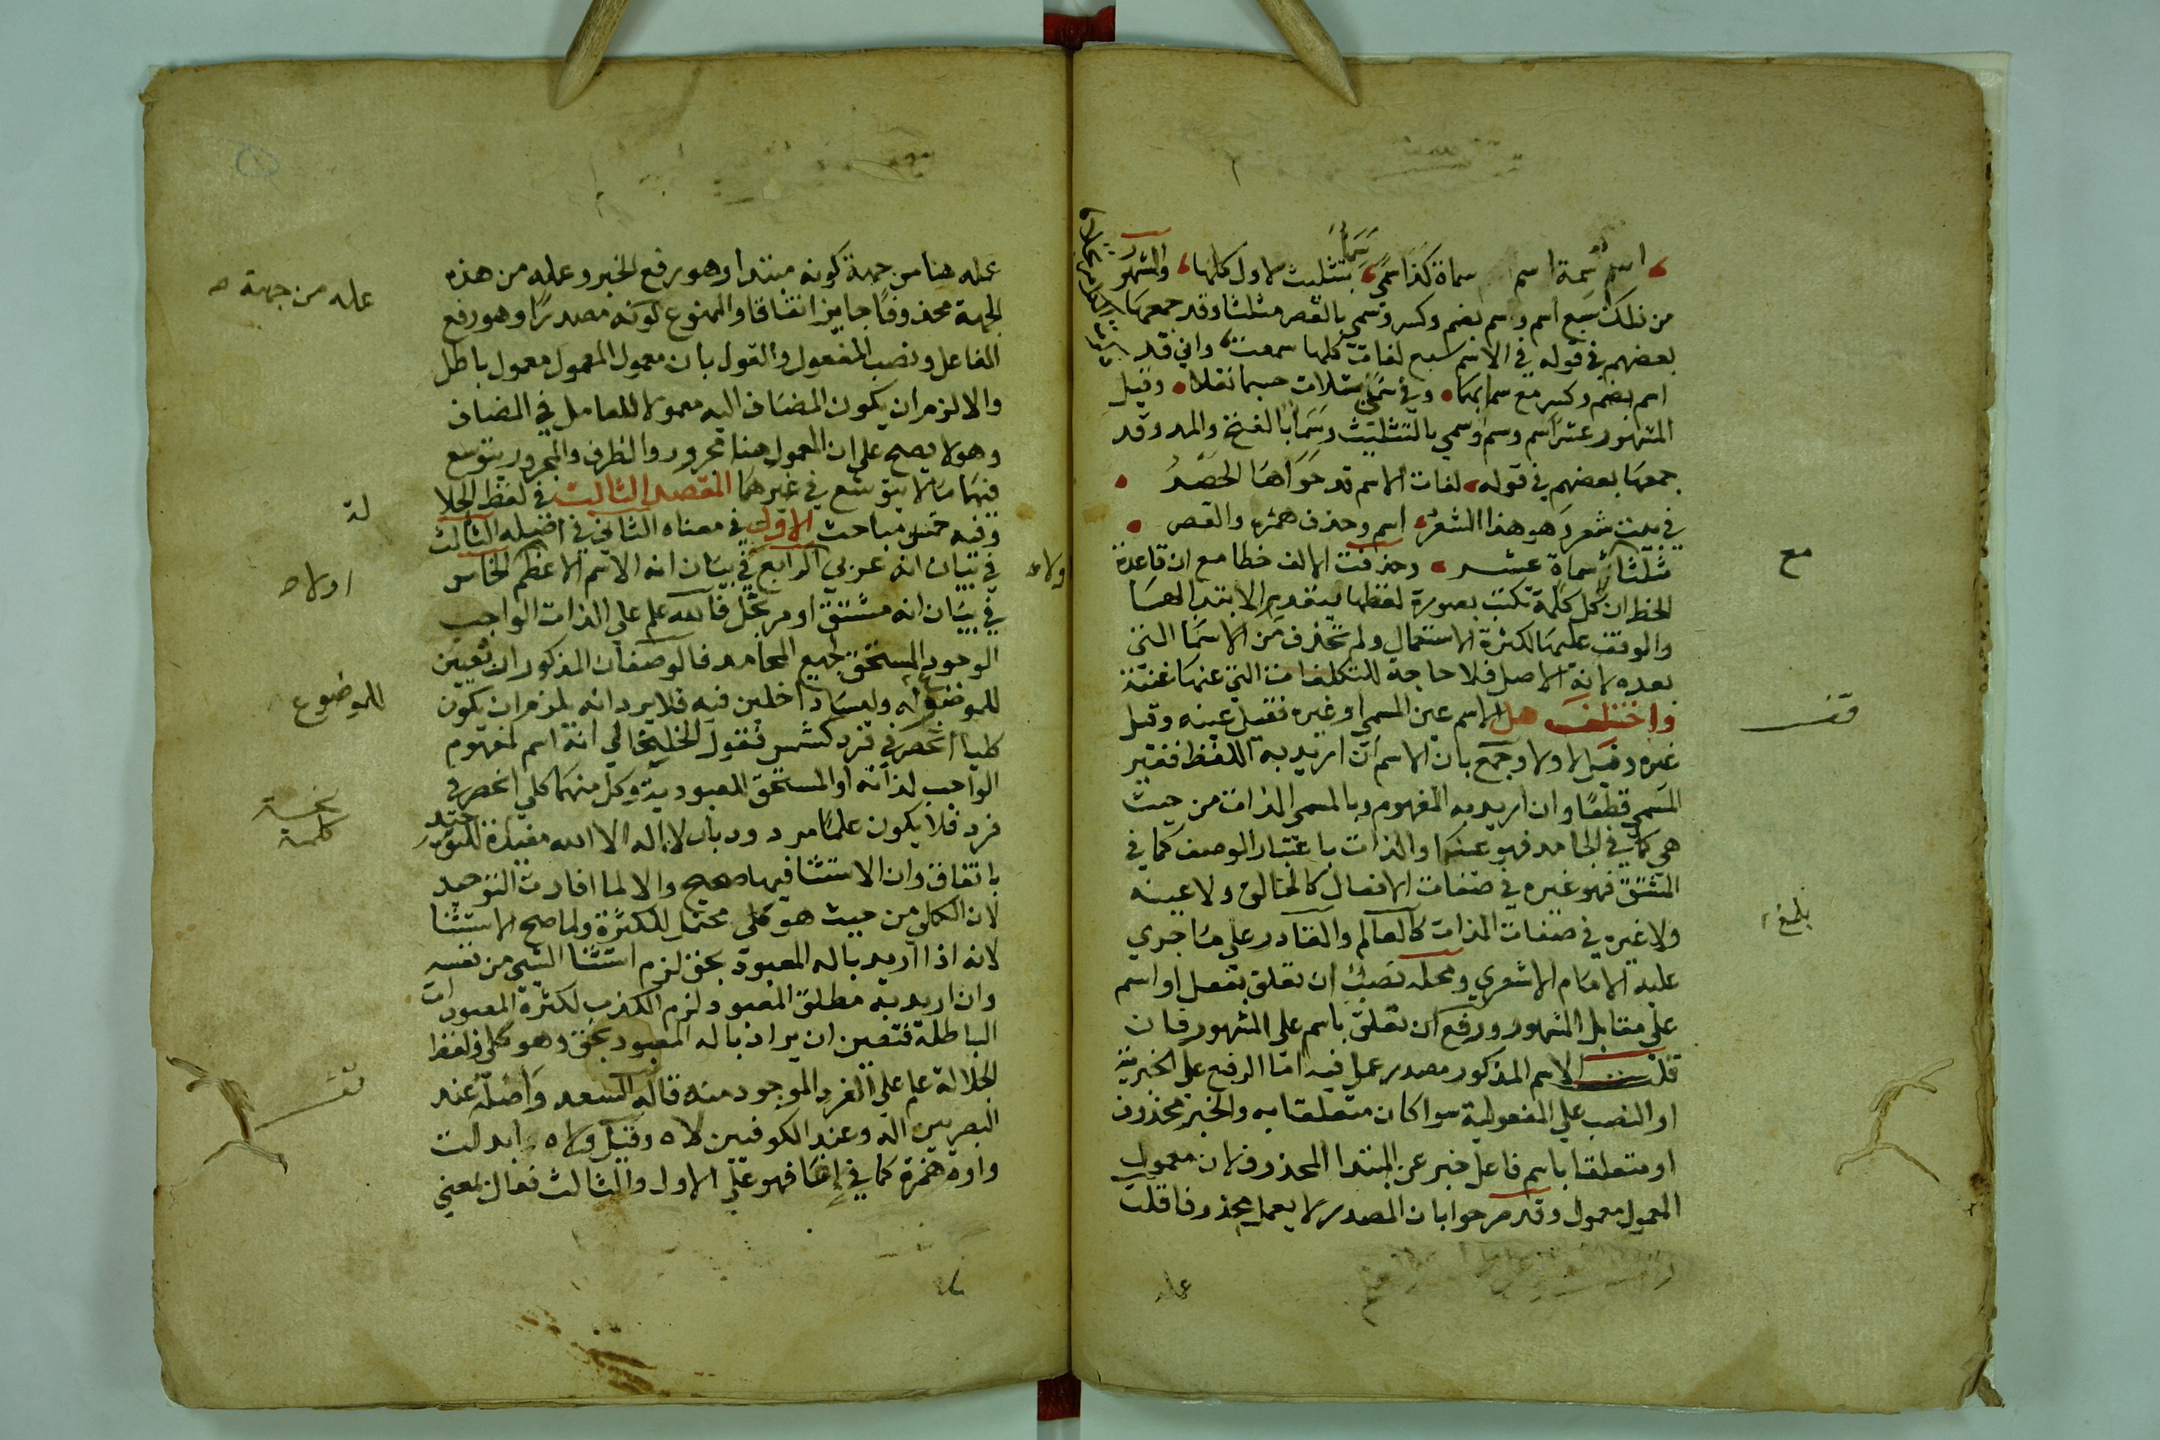 اسم سمة اسم سماة كذا سمى سماء بتثليث لاول كلها والمشهور
من ذلك سبع اسم وسم بضم وكسر وسمي بالقصر مثلثا وقد جمعها
بعضهم في قوله في الاسم سبع لغات كلها سمعت واني قد
اسم بضم وكسر مع سما بهما وفي سمى بتثلاث حسبما نقلا وقيل
المشهور عشر اسم وسم وسمي بالتثليث وسماء بالفتح والمد وقد
جمعها بعضهم في قوله لغات الاسم قد حواها الحصر
في بيت شعر وهو هذا الشعر اسم وحذف همزه والقصر
مثلثا سماة عشر وحذفت الالف خطا مع ان قاعدة
الخط ان كل كلمة تكتب بصورة لفظها بتقدير الابتدا بها
والوقف عليها لكثرة الاستعمال ولم تحذف من الاسما التي
بعده لانه الاصل فلا حاجة للتكلفات التي عنها غنية
واختلف هل الاسم عين المسمي او غيره فقيل عينه وقيل
غيره وقيل لا ولا وجمع بان الاسم ان اريد به اللفظ فغير
المسمي قطعا وان اريد به المفهوم وبالمسمي الذات من حيث
هي كما في الجامد فهو عينها والذات باعتبار الوصف كما في
المشتق فهو غيره في صفات الافعال كالخالق ولا عينه
ولا غيره في صفات الذات كالعالم والقادر علي ما جري
عليه الامام الاشعري ومحله نصب ان تعلق بفعل او اسم
علي مقابل المشهور ورفع ان تعلق باسم علي المشهور فان
قلت الاسم المذكور مصدر عمل فيه اما الرفع علي الخبرية
او النصب علي المفعولية سوا كان متعلقا به والخبر محذوف
او متعلقا باسم فاعل خبر عن المبتدا المحذوف لان معمول
المعمول معمول وقد مر جوابا بان المصدر لا يعمل محذوفا قلت
عمله
مع
قف
بلغ
عمله هنا من جهة كونه مبتدا وهو رفع الخبر وعمله من هذه
الجهة محذوفا جايز اتفاقا والممنوع كونه مصدرا وهو رفع
الفاعل ونصب المفعول والقول بان معمول المعمول معمول باطل
والا لزم ان يكون المضاف اليه معمولا للعامل في المضاف
وهو لا يصح علي ان المعمول هنا مجرور والظرف والمجرور يتوسع
فيهما ما لا يتوسع في غيرهما المقصد الثالث في لفظ الجلا
وفيه خمس مباحث الاول في معناه الثاني في اصله الثالث
في بيان انه عربي الرابع في بيان انه الاسم الاعظم الخامس
في بيان انه مشتق او مرتجل فالله علم علي الذات الواجب
الوجود المستحق لجميع المحامد فالوصفان المذكوران تعيين
للموضوع له وليسا داخلين فيه فلا يرد انه يلزم ان يكون
كليا انحصر في فرد كشمس فقول الخليخالي انه اسم لمفهوم
الواجب لذاته او المستحق للعبودية وكل منهما كلي انحصر في
فرد فلا يكون علما مردود بان لا اله الا الله مفيدة للتوحيد
باتفاق وان الاستثنا فيها صحيح والا لما افادت التوحيد
لان الكلي من حيث هو كلي محتمل للكثرة ولما صح الاستثنا
لانه اذا اريد باله المعبود بحق لزم استثنا الشي من نفسه
وان اريد به مطلق المعبود لزم الكذب لكثرة المعبودات
الباطلة فتعين ان يراد باله المعبود بحق وهو كلي ولفظ
الجلالة علم علي الفرد الموجود منه قاله السعد واصله عند
البصريين اله وعند الكوفيين لاه وقيل ولاه ابدلت
واوه همزة كما في اخا فهو علي الاول والثالث فعال بمعني
عمله من جهة ص
لة
اولاه
للموضوع
نخسة
كلمة
قف
ولاه